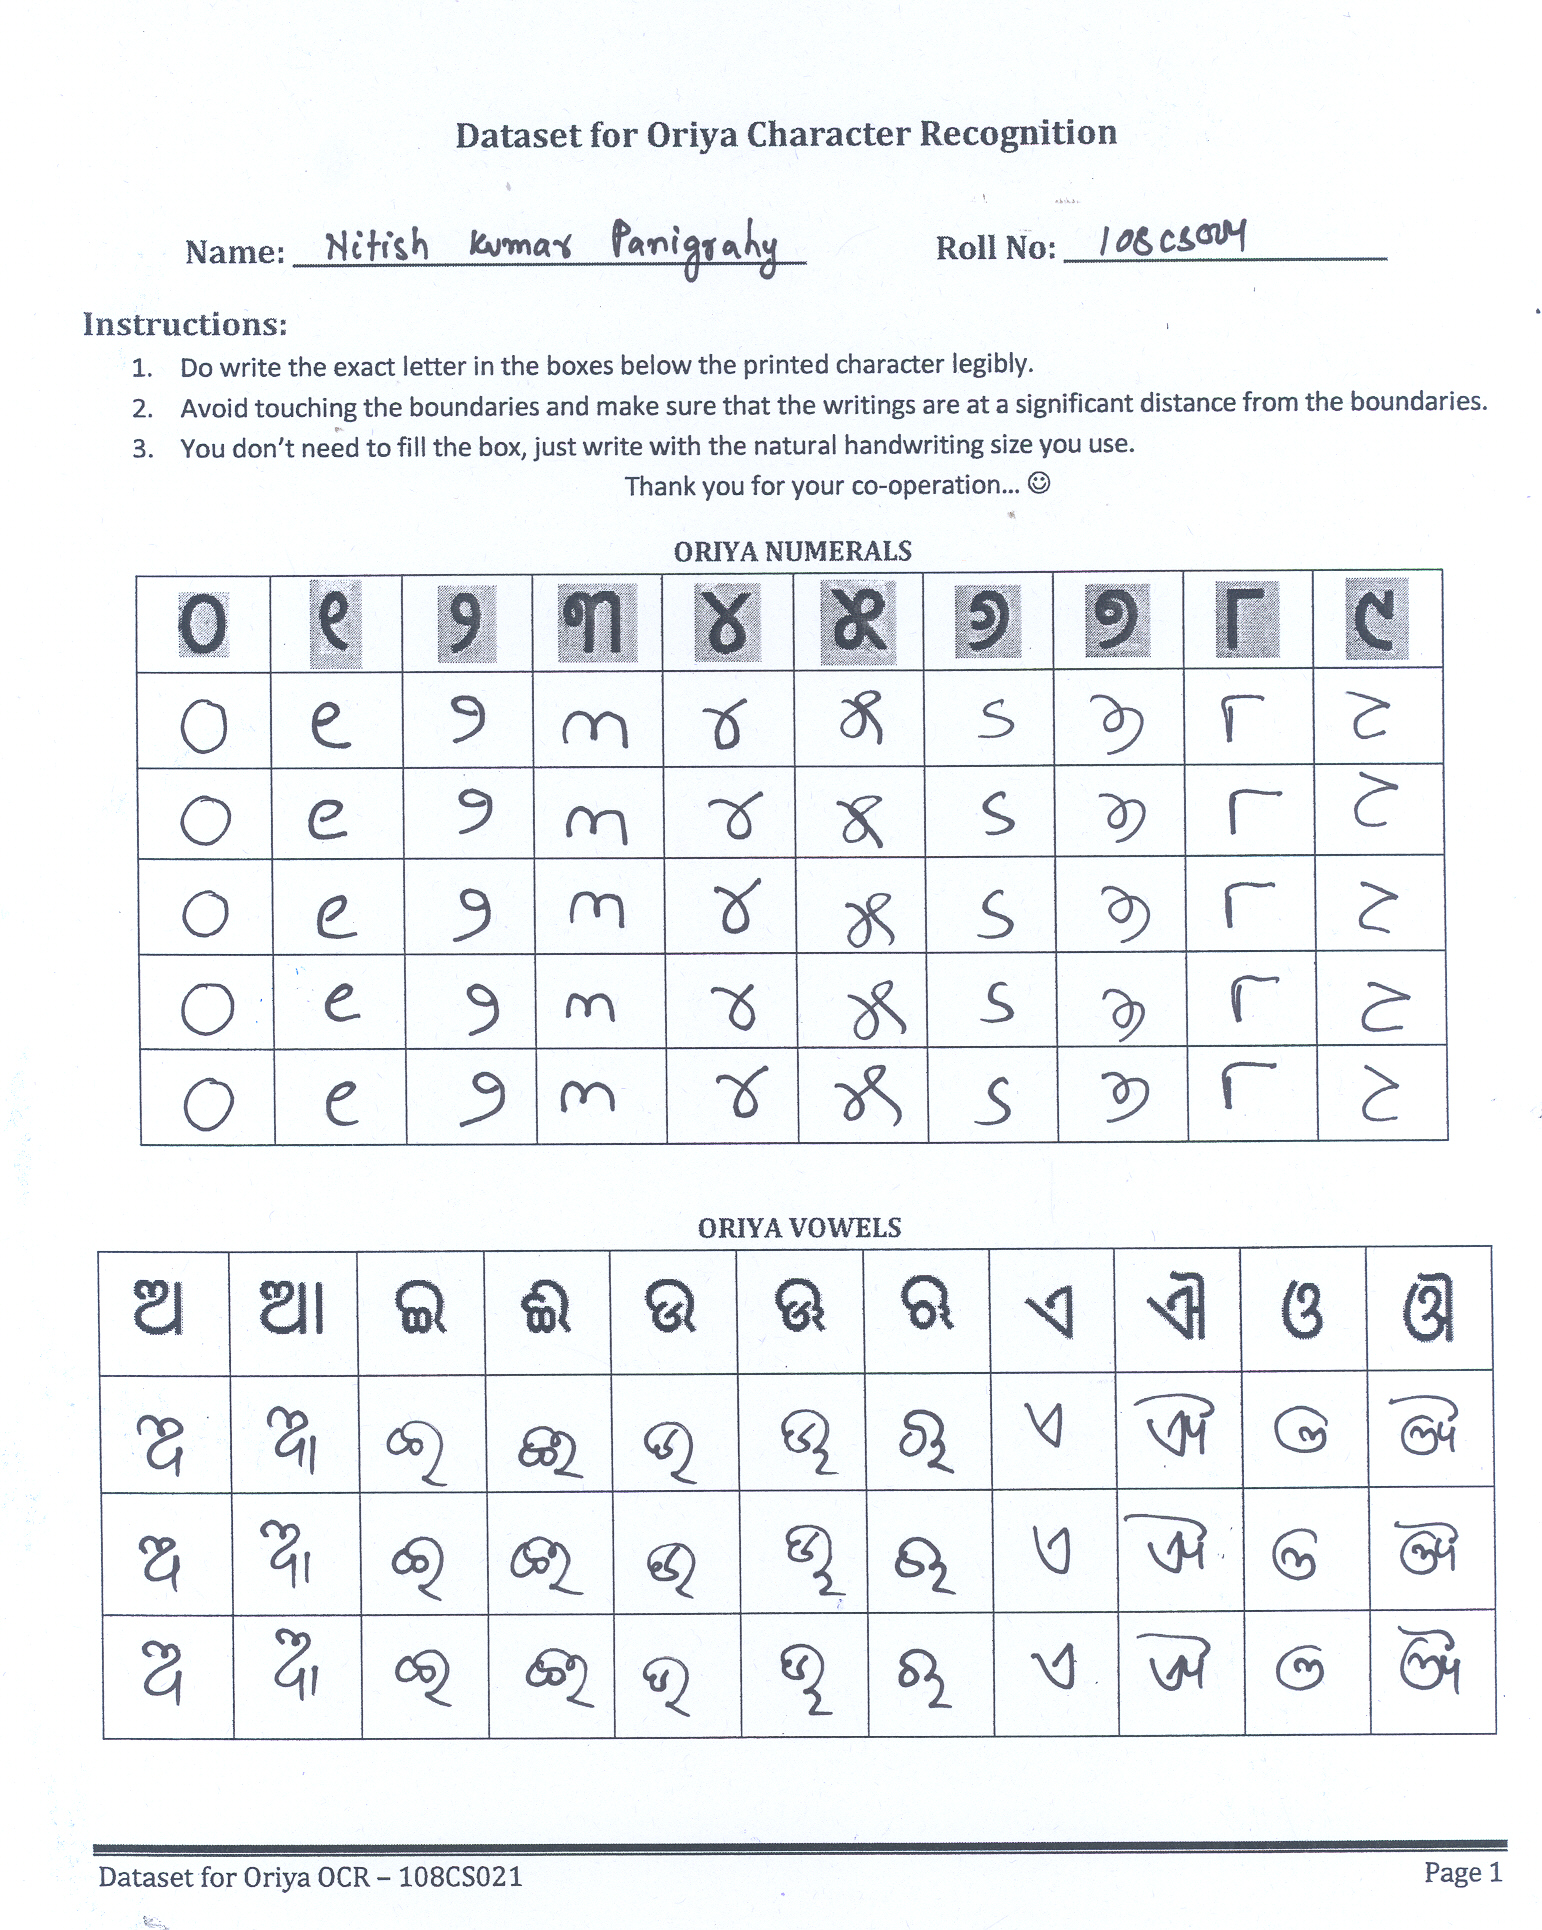 Dataset for Oriya Character Recognition
Name: Nitish Kumar Panigrahy Roll No:
Instructions:
1. Do write the exact letter in the boxes below the printed character legibly.
2. Avoid touching the boundaries and make sure that the writings are at a significant distance from the boundaries.
3. You don't need to fill the box, just write with the natural handwriting size you use.
Thank you for your co-operation... ☺
ORIYA NUMERALS
୦ ୧ ୨ ୩ ୪ ୫ ୬ ୭ ୮ ୯
୦ ୧ ୨ ୩ ୪ ୫ ୬ ୭ ୮ ୯
୦ ୧ ୨ ୩ ୪ ୫ ୬ ୭ ୮ ୯
୦ ୧ ୨ ୩ ୪ ୫ ୬ ୭ ୮ ୯
୦ ୧ ୨ ୩ ୪ ୫ ୬ ୭ ୮ ୯
୦ ୧ ୨ ୩ ୪ ୫ ୬ ୭ ୮ ୯
ORIYA VOWELS
ଅ ଆ ଇ ଈ ଉ ଊ ଋ ଏ ଐ ଓ ଔ
ଅ ଆ ଇ ଈ ଉ ଊ ଋ ଏ ଐ ଓ ଔ
ଅ ଆ ଇ ଈ ଉ ଊ ଋ ଏ ଐ ଓ ଔ
ଅ ଆ ଇ ଈ ଉ ଊ ଋ ଏ ଐ ଓ ଔ
Dataset for Oriya OCR – 108CS021 Page 1